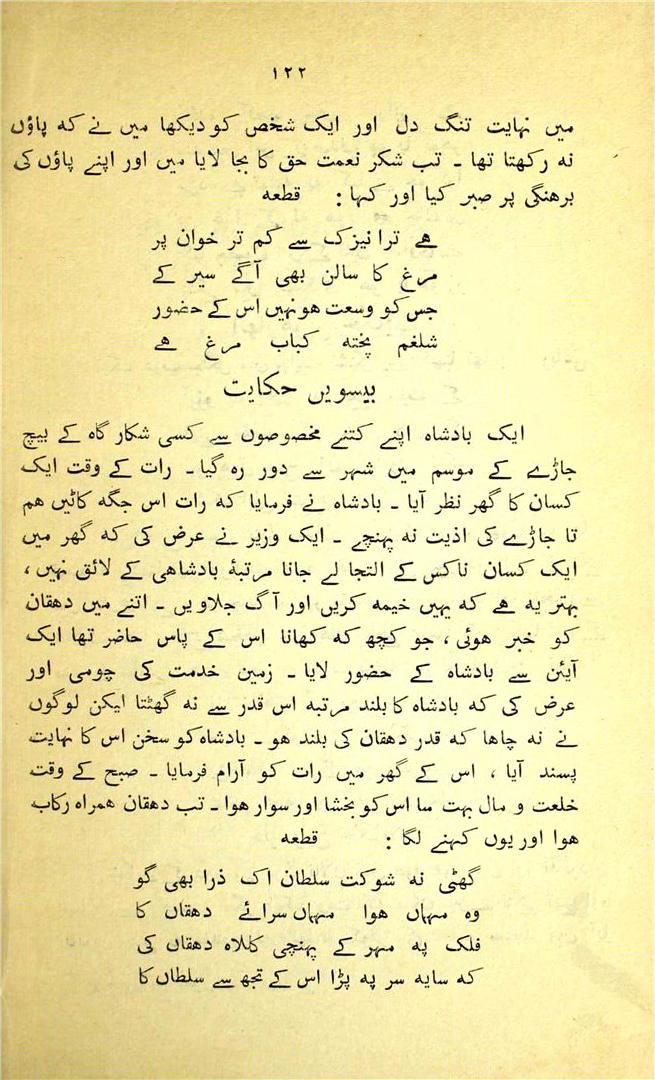 ۱۲۲
میں نہایت تنگ دل اور ایک شخص کو دیکھا میں نے کہ پاؤں
نہ رکھتا تھا ۔ تب شکر نعمت حق کا بجا لایا میں اور اپنے پاؤں کی
برہنگی پر صبر کیا اور کہا : قطعہ
ہے ترا نیزک سے کم تر خوان پر
مرغ کا سالن بھی آگے سیر کے
جس کو وسعت ہو نہیں اس کے حضور
شلغم پختہ کباب مرغ ہے
بیسویں حکایت
ایک بادشاہ اپنے کتنے مخصوصوں سے کسی شکار گاہ کے بیچ
جاڑے کے موسم میں شہر سے دور رہ گیا ۔ رات کے وقت ایک
کسان کا گھر نظر آیا ۔ بادشاہ نے فرمایا کہ رات اس جگہ کاٹیں ہم
تا جاڑے کی اذیت نہ پہنچے ۔ ایک وزیر نے عرض کی کہ گھر میں
ایک کسان ناکس کے التجا لے جانا مرتبۂ بادشاہی کے لائق نہیں ،
بہتر یہ ہے کہ یہیں خیمہ کریں اور آگ جلاویں ۔ اتنے میں دھقان
کو خبر ہوئی ، جو کچھ کہ کھانا اس کے پاس حاضر تھا ایک
آئین سے بادشاہ کے حضور لایا ۔ زمین خدمت کی چومی اور
عرض کی کہ بادشاہ کا بلند مرتبہ اس قدر سے نہ گھٹتا لیکن لوگوں
نے نہ چاہا کہ قدر دھقان کی بلند ہو ۔ بادشاہ کو سخن اس کا نہایت
پسند آیا ، اس کے گھر میں رات کو آرام فرمایا ۔ صبح کے وقت
خلعت و مال بہت سا اس کو بخشا اور سوار ہوا ۔ تب دھقان ہمراہ رکاب
ہوا اور یوں کہنے لگا : قطعہ
گھٹی نہ شوکت سلطان اک ذرا بھی گو
وہ مہماں ہوا مہماں سرائے دھقاں کا
فلک پہ مہر کے پہنچی کلاہ دھقاں کی
کہ سایہ سر پہ پڑا اس کے تجھ سے سلطاں کا